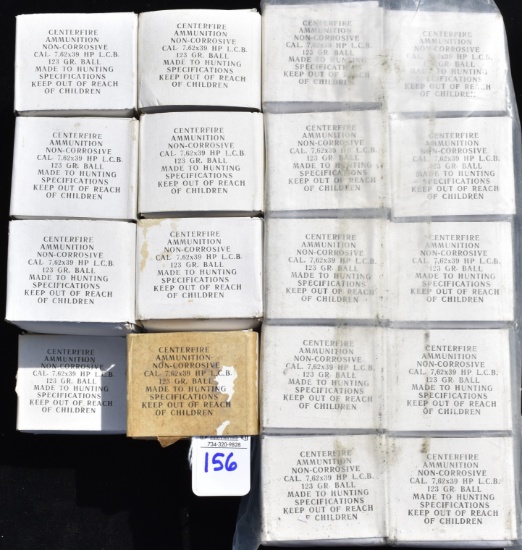 CENTERFIRE
AMMUNITION
NON-CORROSIVE
CAL. 7.62x39 HP L.C.B.
123 GR. BALL
MADE TO HUNTING
SPECIFICATIONS
KEEP OUT OF REACH
OF CHILDREN
CENTERFIRE
AMMUNITION
NON-CORROSIVE
CAL. 7.62x39 HP L.C.B.
123 GR. BALL
MADE TO HUNTING
SPECIFICATIONS
KEEP OUT OF REACH
OF CHILDREN
CENTERFIRE
AMMUNITION
NON-CORROSIVE
CAL. 7.62x39 HP L.C.B.
123 GR. BALL
MADE TO HUNTING
SPECIFICATIONS
KEEP OUT OF REACH
OF CHILDREN
CENTERFIRE
AMMUNITION
NON-CORROSIVE
CAL. 7.62x39 HP L.C.B.
123 GR. BALL
MADE TO HUNTING
SPECIFICATIONS
KEEP OUT OF REACH
OF CHILDREN
CENTERFIRE
AMMUNITION
NON-CORROSIVE
CAL. 7.62x39 HP L.C.B.
123 GR. BALL
MADE TO HUNTING
SPECIFICATIONS
KEEP OUT OF REACH
OF CHILDREN
CENTERFIRE
AMMUNITION
NON-CORROSIVE
CAL. 7.62x39 HP L.C.B.
123 GR. BALL
MADE TO HUNTING
SPECIFICATIONS
KEEP OUT OF REACH
OF CHILDREN
CENTERFIRE
AMMUNITION
NON-CORROSIVE
CAL. 7.62x39 HP L.C.B.
123 GR. BALL
MADE TO HUNTING
SPECIFICATIONS
KEEP OUT OF REACH
OF CHILDREN
CENTERFIRE
AMMUNITION
NON-CORROSIVE
CAL. 7.62x39 HP L.C.B.
123 GR. BALL
MADE TO HUNTING
SPECIFICATIONS
KEEP OUT OF REACH
OF CHILDREN
CENTERFIRE
AMMUNITION
NON-CORROSIVE
CAL. 7.62x39 HP L.C.B.
123 GR. BALL
MADE TO HUNTING
SPECIFICATIONS
KEEP OUT OF REACH
OF CHILDREN
CENTERFIRE
AMMUNITION
NON-CORROSIVE
CAL. 7.62x39 HP L.C.B.
123 GR. BALL
MADE TO HUNTING
SPECIFICATIONS
KEEP OUT OF REACH
OF CHILDREN
CENTERFIRE
AMMUNITION
NON-CORROSIVE
CAL. 7.62x39 HP L.C.B.
123 GR. BALL
MADE TO HUNTING
SPECIFICATIONS
KEEP OUT OF REACH
OF CHILDREN
CENTERFIRE
AMMUNITION
NON-CORROSIVE
CAL. 7.62x39 HP L.C.B.
123 GR. BALL
MADE TO HUNTING
SPECIFICATIONS
KEEP OUT OF REACH
OF CHILDREN
CENTERFIRE
AMMUNITION
NON-CORROSIVE
CAL. 7.62x39 HP L.C.B.
123 GR. BALL
MADE TO HUNTING
SPECIFICATIONS
KEEP OUT OF REACH
OF CHILDREN
CENTERFIRE
AMMUNITION
NON-CORROSIVE
CAL. 7.62x39 HP L.C.B.
123 GR. BALL
MADE TO HUNTING
SPECIFICATIONS
KEEP OUT OF REACH
OF CHILDREN
CENTERFIRE
AMMUNITION
NON-CORROSIVE
CAL. 7.62x39 HP L.C.B.
123 GR. BALL
MADE TO HUNTING
SPECIFICATIONS
KEEP OUT OF REACH
OF CHILDREN
CENTERFIRE
AMMUNITION
NON-CORROSIVE
CAL. 7.62x39 HP L.C.B.
123 GR. BALL
MADE TO HUNTING
SPECIFICATIONS
KEEP OUT OF REACH
OF CHILDREN
CENTERFIRE
AMMUNITION
NON-CORROSIVE
CAL. 7.62x39 HP L.C.B.
123 GR. BALL
MADE TO HUNTING
SPECIFICATIONS
KEEP OUT OF REACH
OF CHILDREN
CENTERFIRE
AMMUNITION
NON-CORROSIVE
CAL. 7.62x39 HP L.C.B.
123 GR. BALL
MADE TO HUNTING
SPECIFICATIONS
KEEP OUT OF REACH
OF CHILDREN
734-320-9828
156